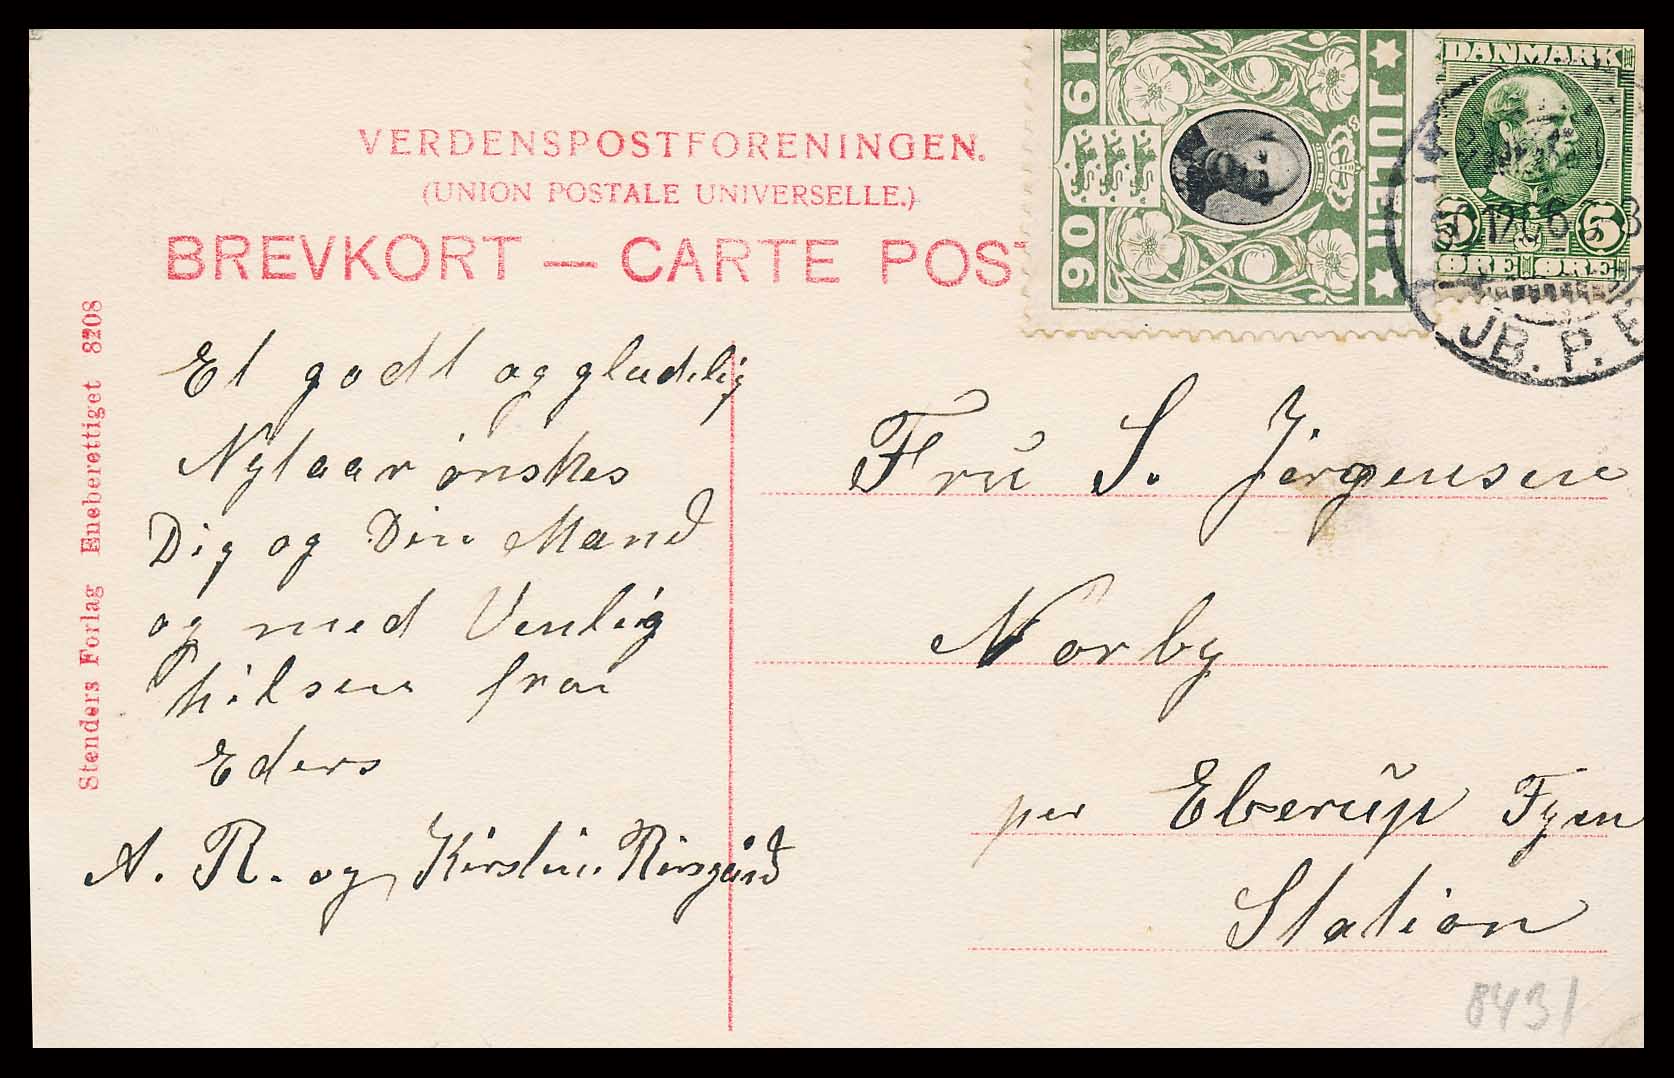 VERDENSPOSTFORENINGEN.
(UNION POSTALE UNIVERSELLE.)
BREVKORT — CARTE POST
1906
JULEN
DANMARK
5 5
ØRE ØRE
JB. P. E
Stenders Forlag Eneberettiget 8208
Et godt og glædelig
Nytaar ønskes
Dig og Din Mand
og med Venlig
hilsen fra
Eders
A. R. og Kirstine Risgård
Fru S. Jørgensen
Nørby
per Elserup Fyen
Station
8431